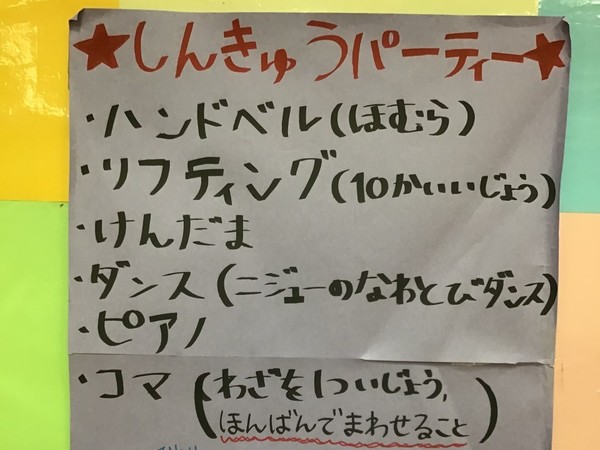 ★しんきゅうパーティー★
・ハンドベル(ほむら)
・リフティング(10かいいじょう)
・けんだま
・ダンス(ニジューのなわとびダンス)
・ピアノ
・コマ(わざを1ついじょう,
ほんばんでまわせること)